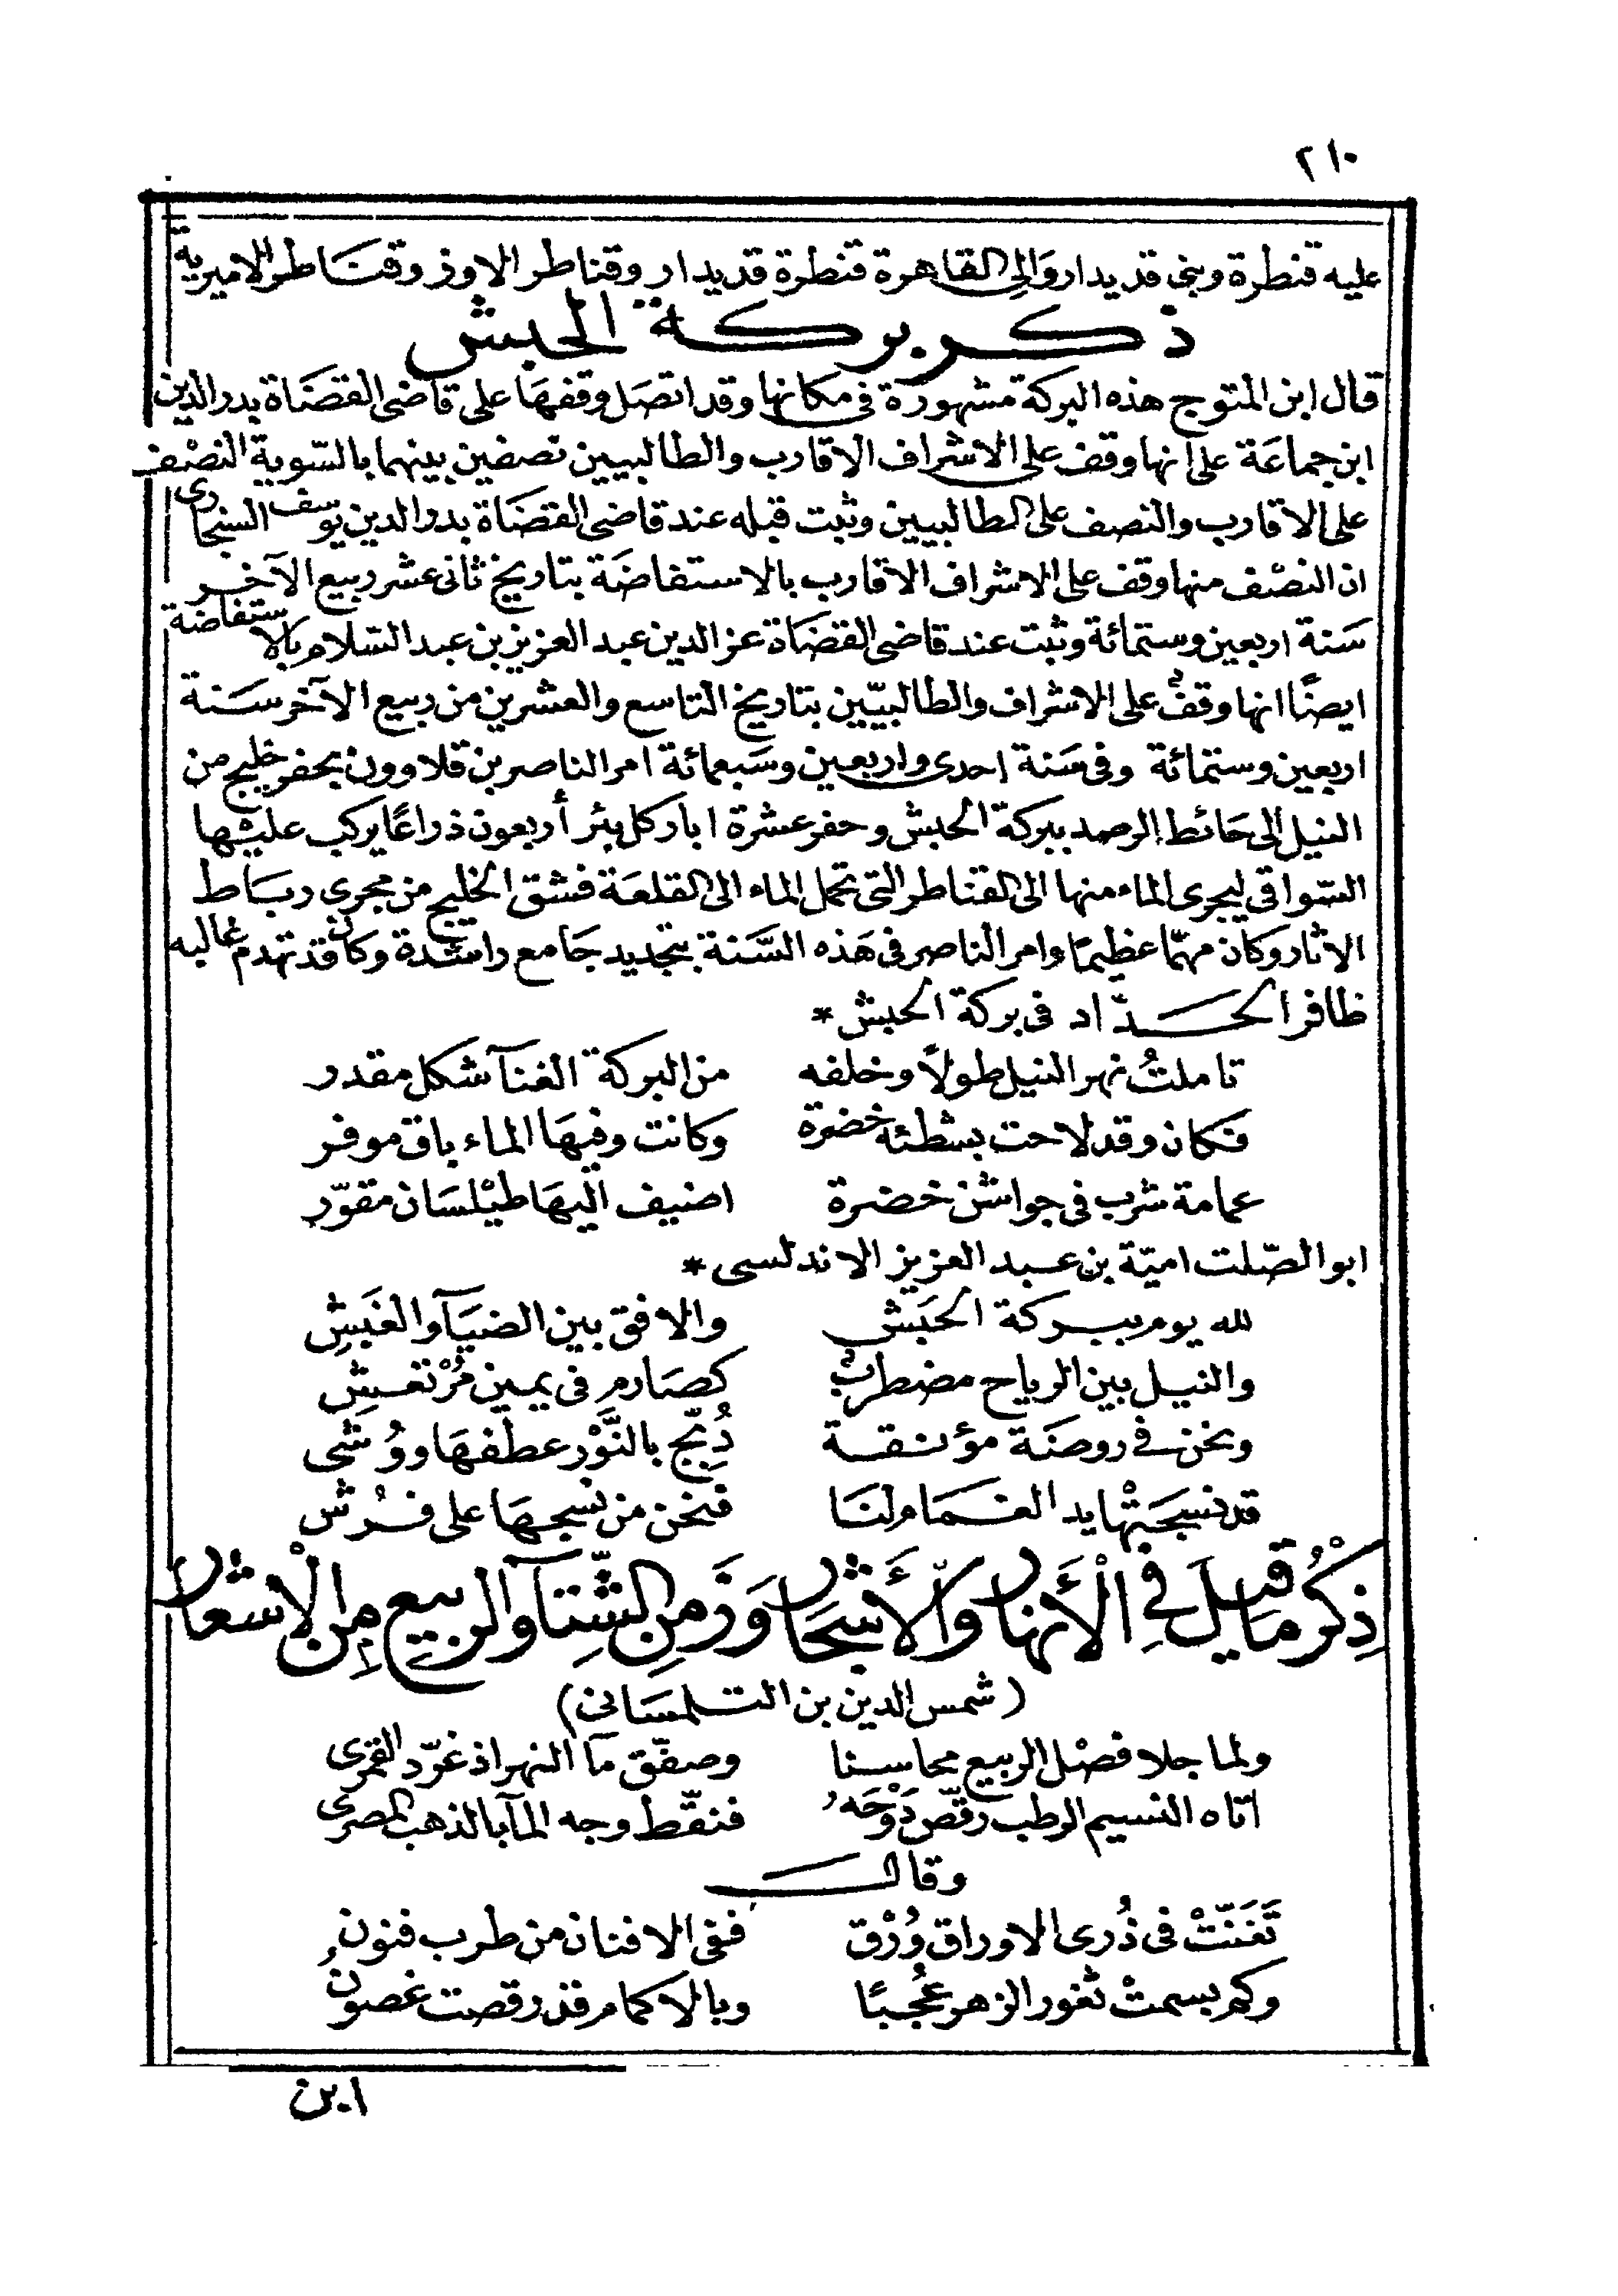 ٢١٠
عليه قنطرة وبنى قديدار والى القاهرة قنطرة قديدار وقناطر الاوز وقناطر الاميرية
ذكر بركة الحبش
قال ابن المتوج هذه البركة مشهورة فى مكانها وقد اتصل وقفها على قاضى القضاة بدر الدين
ابن جماعة على انها وقف على الاشراف الاقارب والطالبيين نصفين بينهما بالسّوية النصْف
على الاقارب والنصف على الطالبيين وثبت قبله عند قاضى القضاة بدر الدين يوسف السنجارى
ان النصْف منها وقف على الاشراف الاقارب بالاستفاضة بتاريخ ثانى عشر ربيع الآخر
سنة اربعين وستمائة وثبت عند قاضى القضاة عز الدين عبد العزيز بن عبد السّلام بالاستفاضة
ايضًا انها وقفٌ على الاشراف والطالبيّين بتاريخ التاسع والعشرين من ربيع الآخر سنة
اربعين وستمائة وفى سنة احدى واربعين وسبعمائة امر الناصر بن قلاوون بحفر خليج من
النيل الى حائط الرصد ببركة الحبش وحفر عشرة ابار كل بئر أربعون ذراعًا يركب عليها
السّواقى ليجرى الماء منها الى القناطر التى تحمل الماء الى القلعة فشق الخليج من مجرى رباط
الاثار وكان مهمّا عظيمًا وامر الناصر فى هذه السَّنة بتجديد جامع راشدة وكان قد تهدم غالبه
ظافر الحدّاد فى بركة الحبش *
تاملتُ نهر النيل طولًا وخلفه من البركة الغنآ شكل مقدر
فكان وقد لاحت بشطئه خضرة وكانت وفيها الماء باق موفر
عمامة شرب فى جواشن خضرة اضيف اليها طيْلسان مقوّر
ابو الصّلت اميّة بن عبد العزيز الاندلسى *
لله يوم ببركة الحبَش والافق بين الضيآ والغَبَشِ
والنيل بين الرياح مضطربٌ كصارم فى يمين مُرْتعشِ
ونحن فى روضة مؤنقة دُبّج بالنَّوْر عطفها ووُشى
قد نسجَتْها يد الغمام لنا فنحن من نسجها على فُرُش
ذِكْرُ ما قيل فِي الْأَنهار والأَشجار وَزَمنِ الشّتآ والربيع مِنَ الْأشعار
(شمس الدين بن التلمسانى)
ولما جلا فصْل الربيع محاسنا وصفّق مآ النهر اذ غرّد القمرى
اتاه النسيم الرطب رقّص دَوْحَهُ فنقّط وجه المآ بالذهب المصرى
وقال
تَغَنّتْ فى ذُرى الاوراق وُرْق ففى الافنان من طرب فنون
وكم بسمتْ ثغور الزهر عُجبًا وبالاكمام قد رقصت غصون
ابن